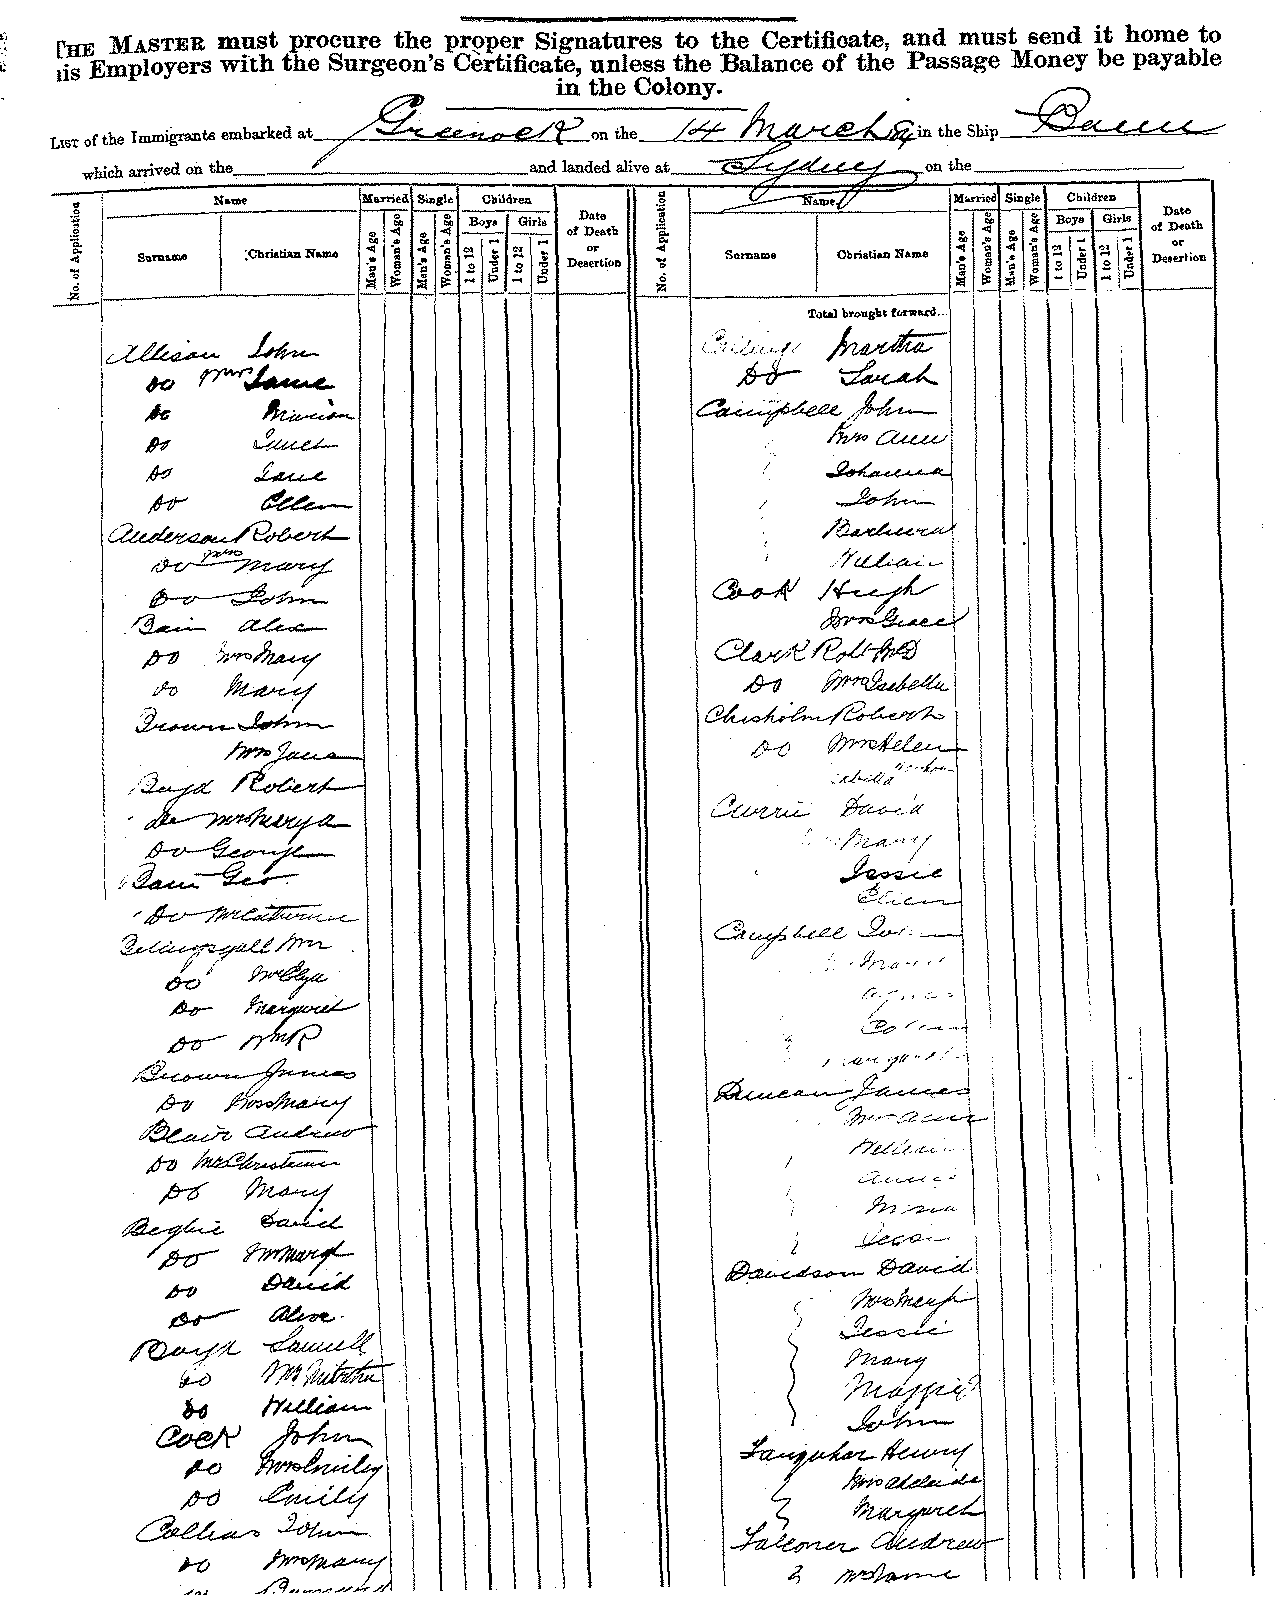 THE MASTER must procure the proper Signatures to the Certificate, and must send it home to
his Employers with the Surgeon's Certificate, unless the Balance of the Passage Money be payable
in the Colony.
LIST of the Immigrants embarked at Greenock on the 14 March in the Ship
which arrived on the and landed alive at Sydney on the
No. of Application
Name
Surname
Christian Name
Married
Man's Age
Woman's Age
Single
Man's Age
Woman's Age
Children
Boys
1 to 12
Under 1
Girls
1 to 12
Under 1
Date of Death or Desertion
No. of Application
Name
Surname
Christian Name
Married
Man's Age
Woman's Age
Single
Man's Age
Woman's Age
Children
Boys
1 to 12
Under 1
Girls
1 to 12
Under 1
Date of Death or Desertion
Allison John
Do Mrs Jane
Do Marion
Do Janet
Do Jane
Do Ellen
Anderson Robert
Do Mrs Mary
Do John
Bain Alex
Do Mrs Mary
do Mary
Brown John
Mrs Jane
Boyd Robert
Do Mrs Mary A
Do George
Bain Geo
Do Mrs Catherine
Wm
Do Mrs Eliza
Do Margaret
Do Wm R
Brown James
Do Mrs Mary
Blair Andrew
Do Mrs Christina
Do Mary
Begbie David
Do Mrs Margt
Do David
Do
Samuell
Do Mrs
Do William
Cock John
Do Mrs Emily
Do Emily
Collins John
Do Mrs Mary
Total brought forward...
Martha
Do Sarah
Campbell John
Mrs Ann
Johanna
John
Barbara
William
Cook Hugh
Mrs Grace
Clark Robt
Do Mrs Isabella
Chisholm Robert
Do Mrs Helen
Currie David
Mary
Jessie
Ellen
Campbell John
Agnes
Duncan James
Mrs Ann
William
Jessie
Davidson David
Mrs Mary
Jessie
Mary
Maggie
John
Farquhar Henry
Mrs Adelaide
Margaret
Falconer Andrew
Mrs Jane